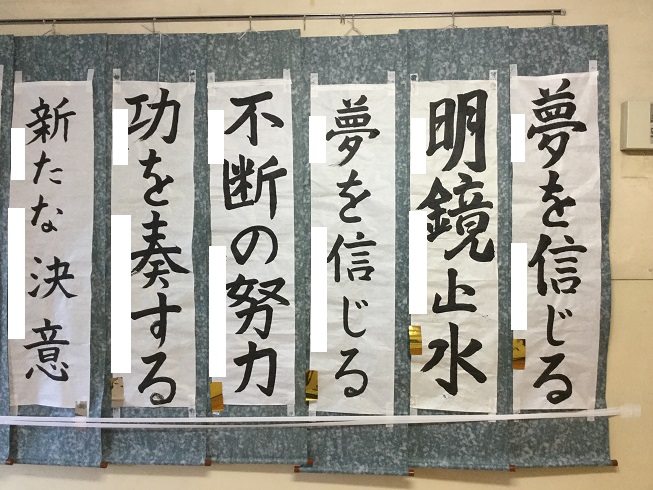 夢を信じる
明鏡止水
夢を信じる
不断の努力
功を奏する
新たな決意